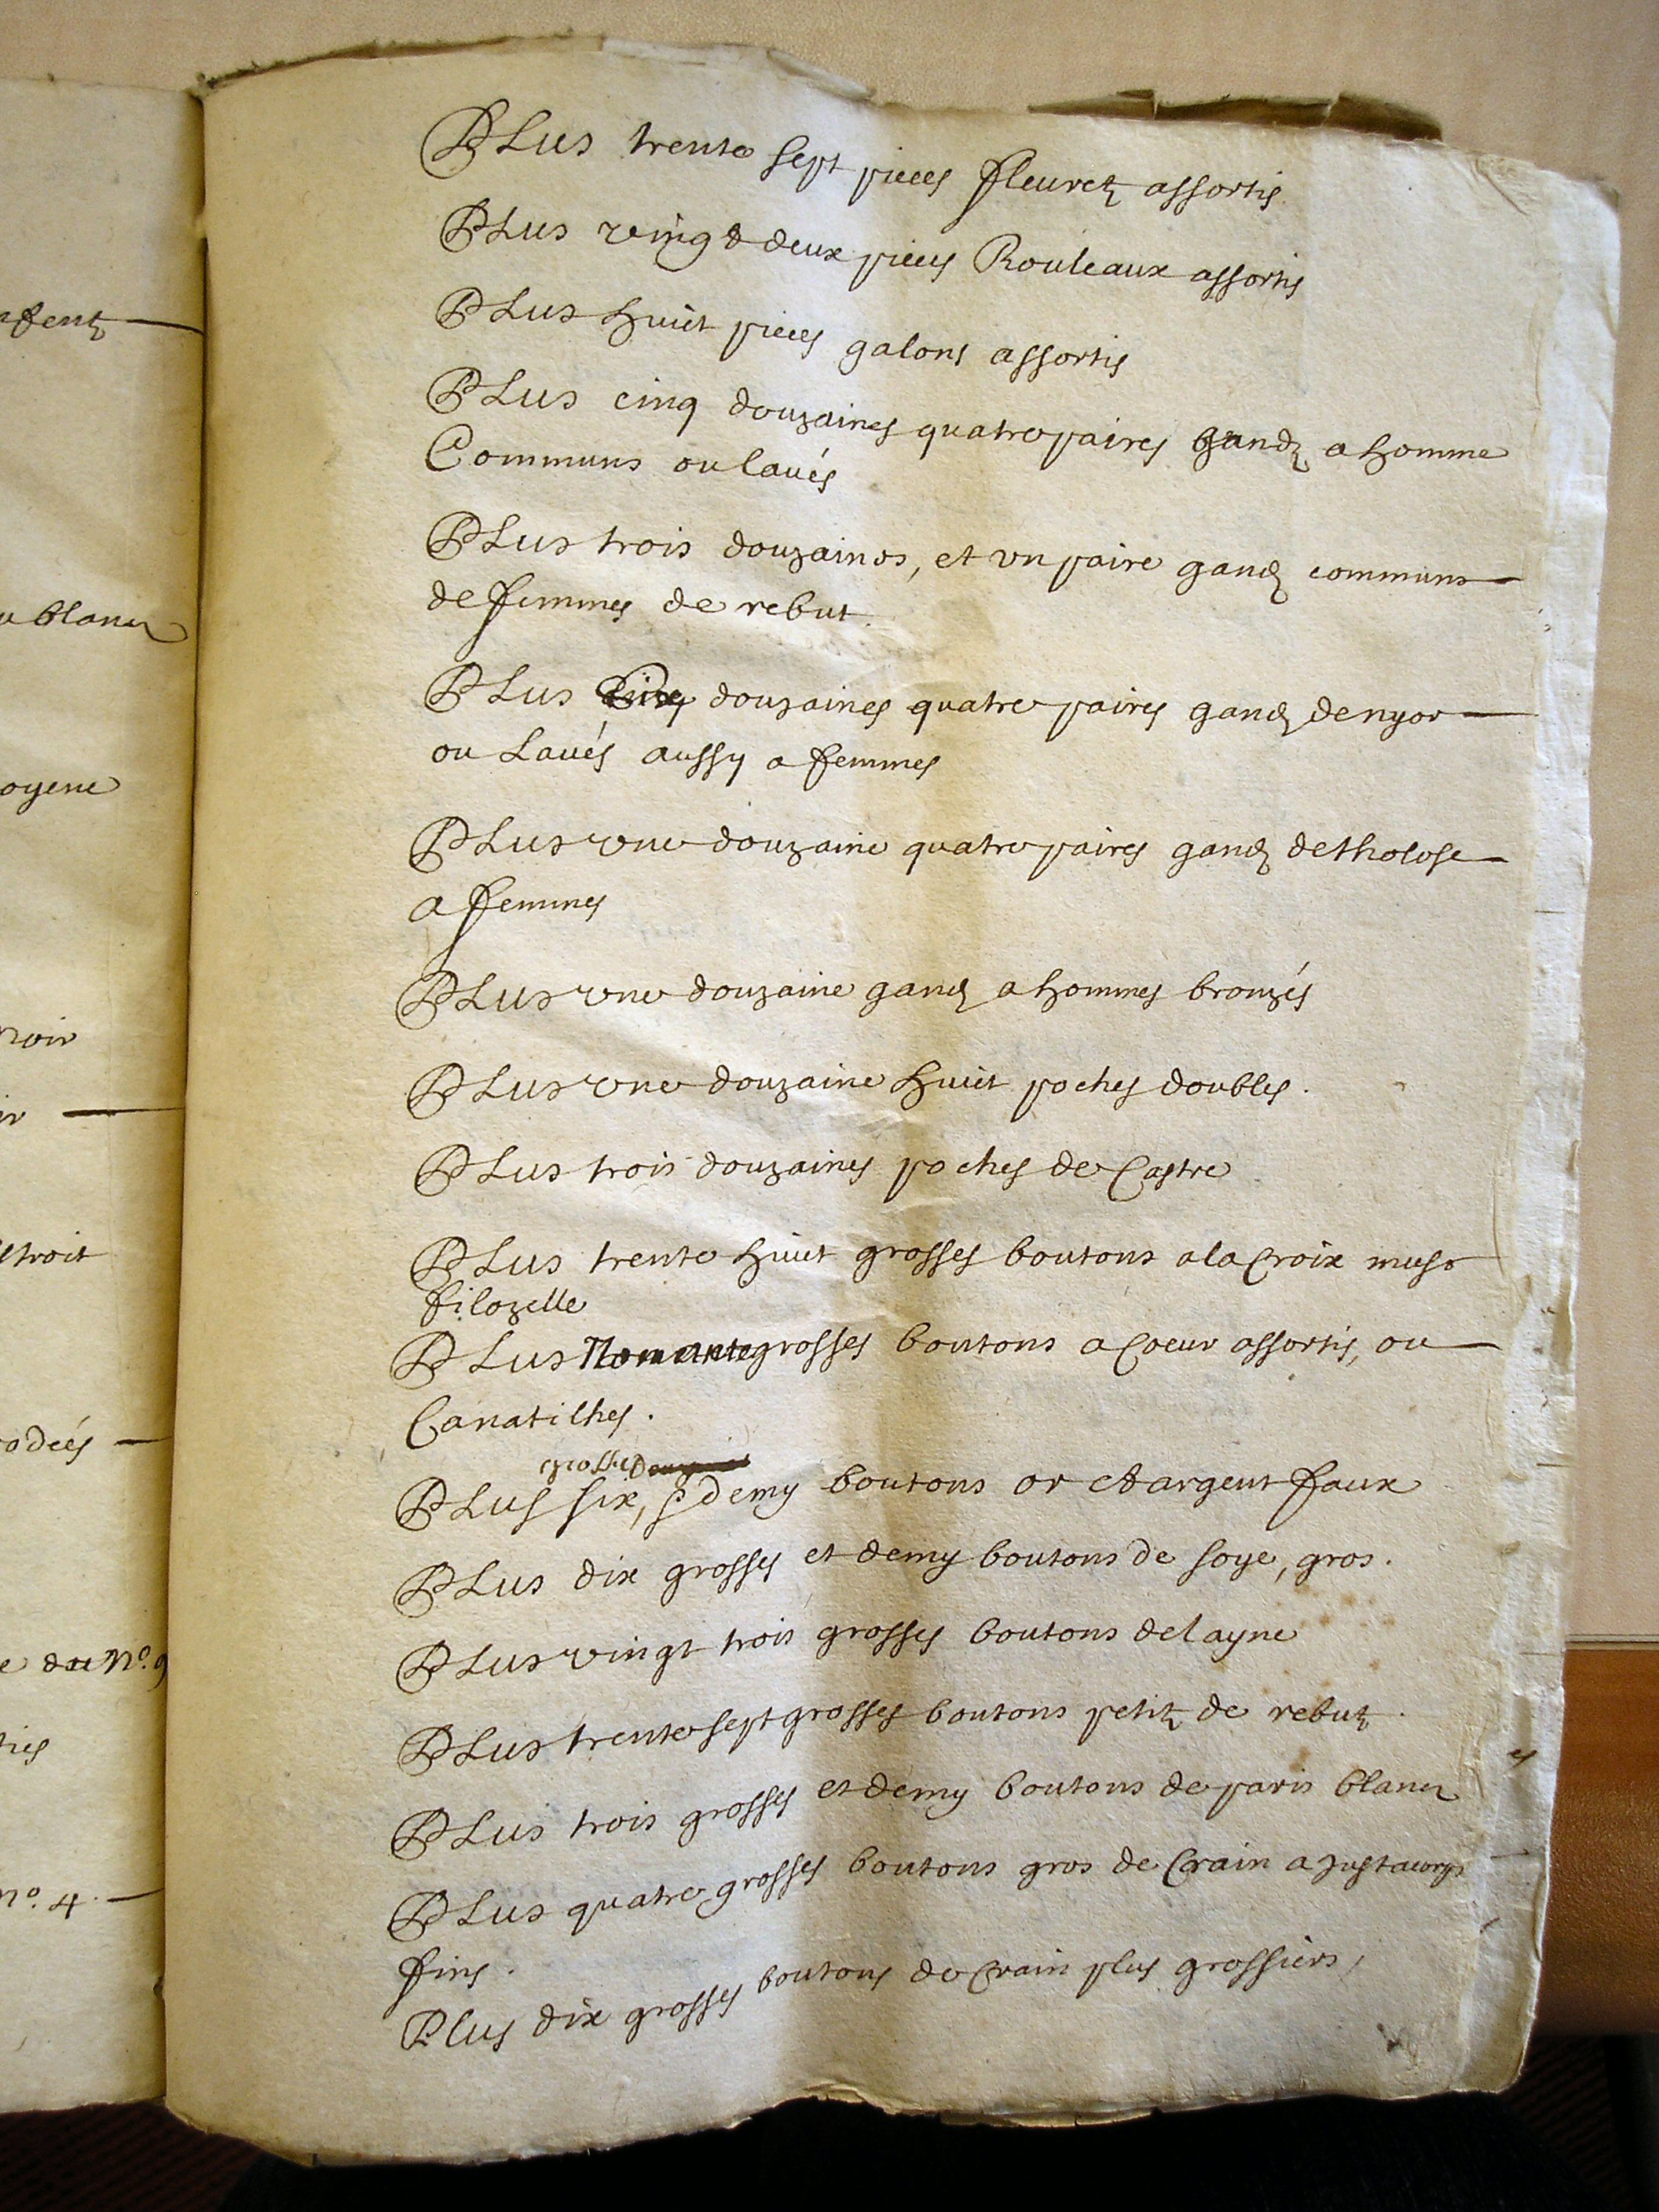 nfentz
u blancz
oyene
noir
ir
etroit
rodéés
e du N.º 9
ties
N.º 4.
PLus trente sept pieces fleuretz assortis
PLus vingt deux pieces Rouleaux assortis
PLus huict pieces galons assortis
PLus cinq douzaines quatre paires gandz a homme
Communs ou laués
PLus trois douzaines, et vn paire gandz communs
de femmes de rebut.
PLus Cinq douzaines quatre paires gandz de nyor
ou Laués aussy a femmes
PLus vne douzaine quatre paires gandz de tholose
a femmes
PLus vne douzaine gandz a hommes bronzés
PLus vne douzaine huict poches doubles.
PLus trois douzaines poches de Castre
PLus trente huict grosses boutons a la Croix musc
filozelle
PLus Nonante grosses boutons a Coeur assortis, ou
Canatilhes.
grosses
PLus six, demy boutons or et argent faux
PLus dix grosses et demy boutons de soye, gros.
PLus vingt trois grosses boutons de layne
PLus trente sept grosses boutons petitz de rebutz.
PLus trois grosses et demy boutons de paris blancz
PLus quatre grosses boutons gros de Crain a Justacorps
fins.
Plus dix grosses boutons de Crain plus grossiers,